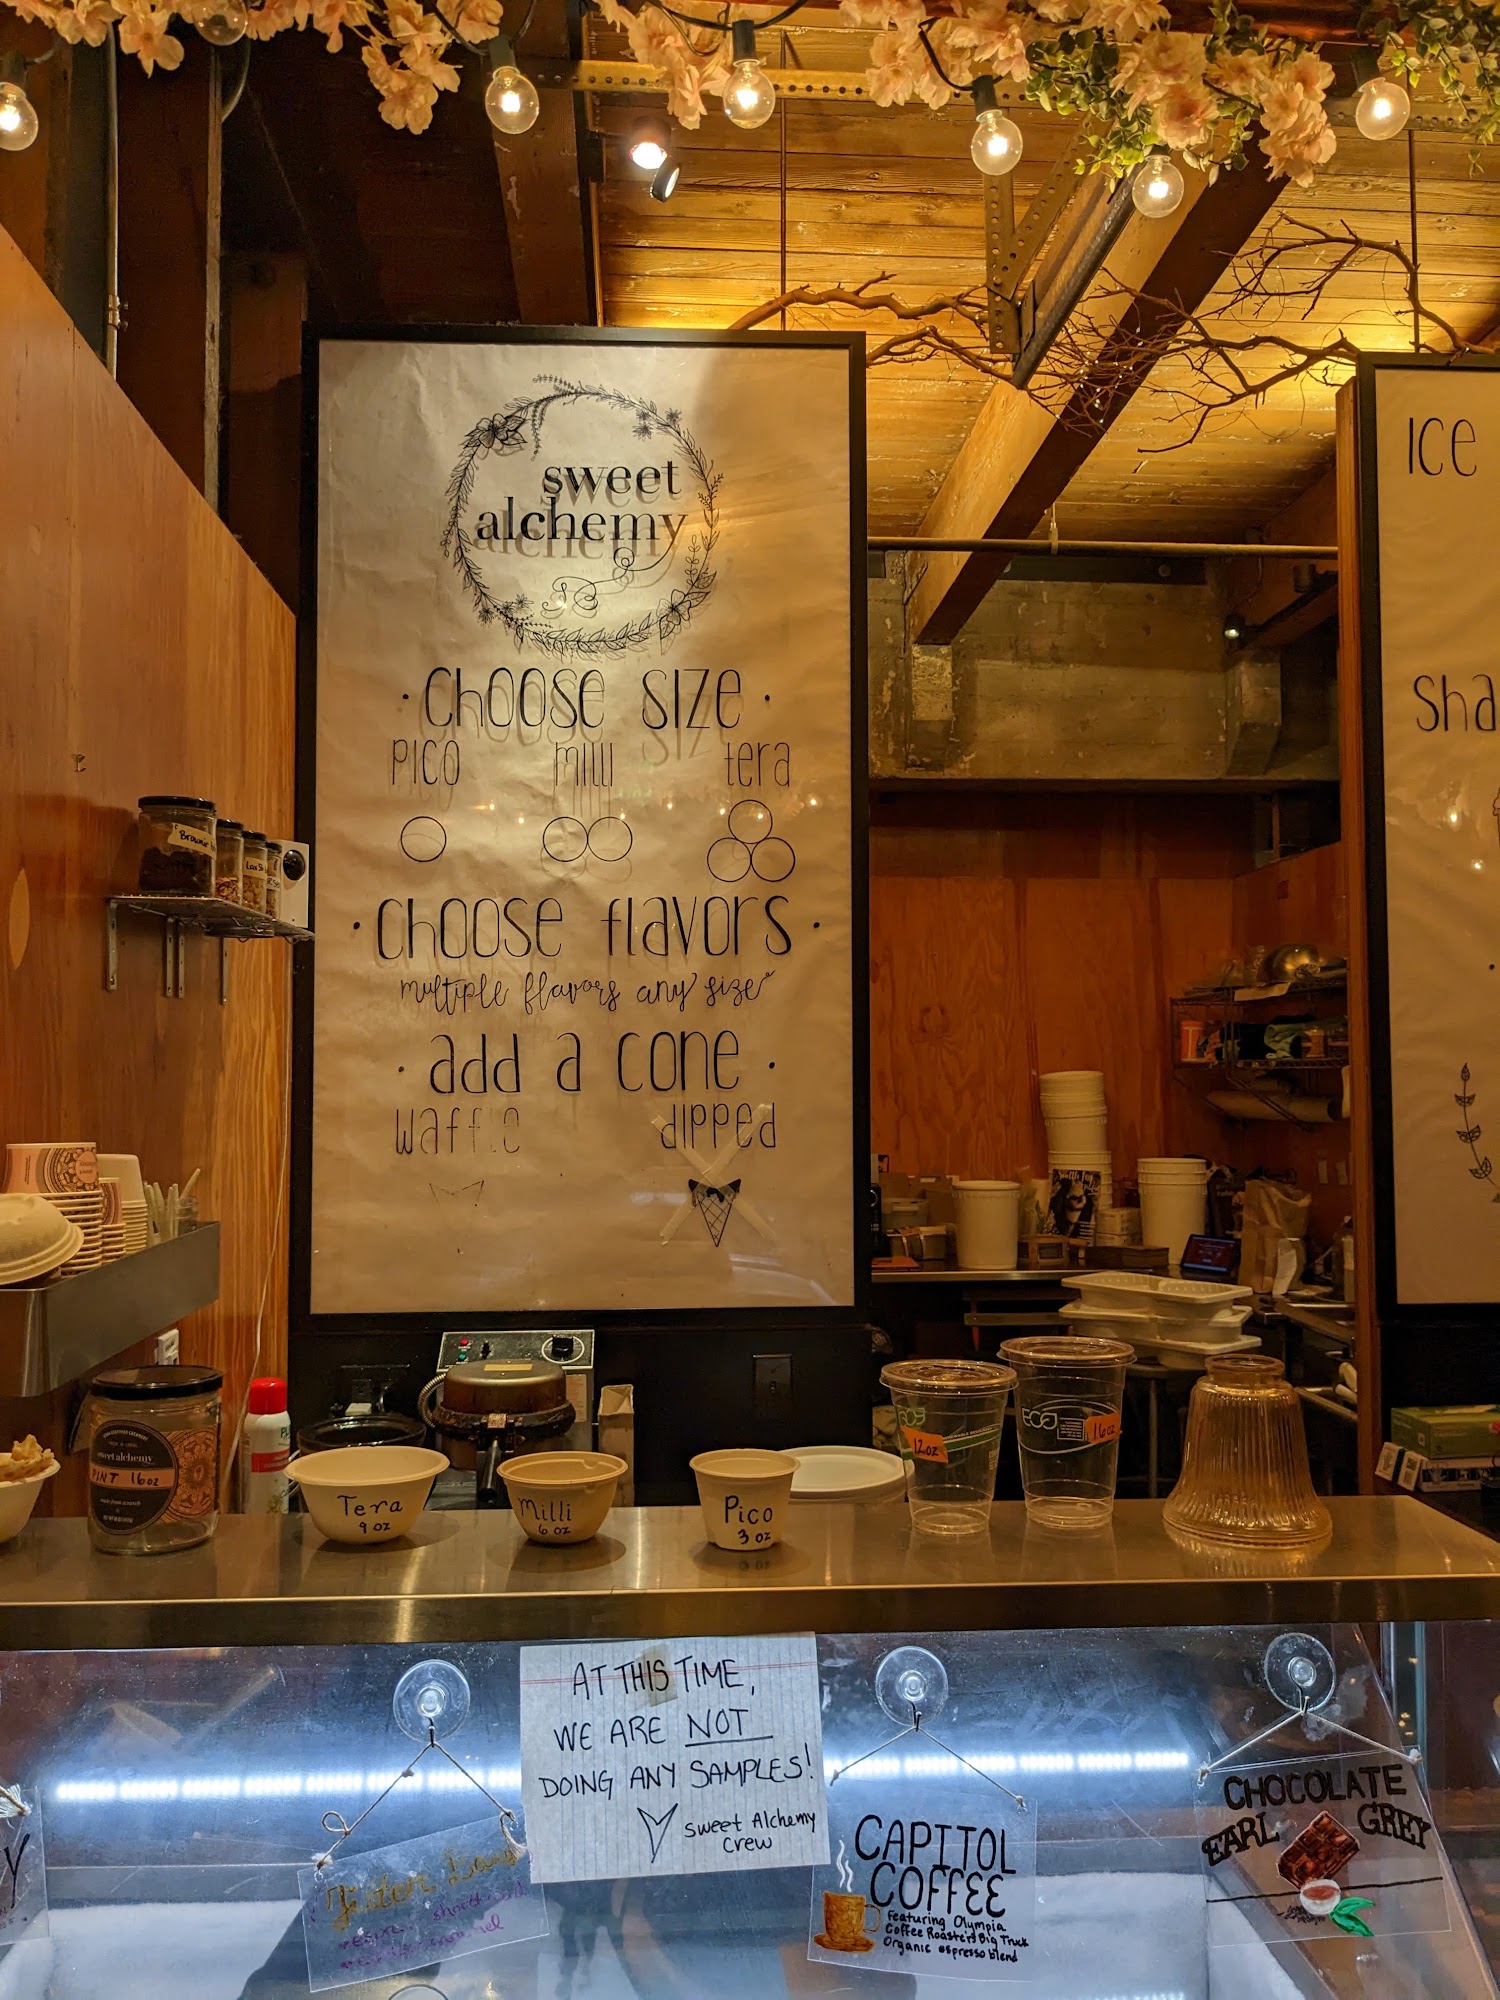 sweet
alchemy
· choose size ·
pico milli tera
· choose flavors ·
multiple flavors any size
· add a cone ·
waffle dipped
ICE
Sha
Brownie
sweet alchemy
PINT 16oz
Tera
9 oz
Milli
6 oz
Pico
3 oz
12oz
ECO
16oz
AT THIS TIME,
WE ARE NOT
DOING ANY SAMPLES!
Sweet Alchemy
Crew
CAPITOL
COFFEE
Featuring Olympia
Coffee Roasters Big Truck
Organic espresso blend
CHOCOLATE
EARL GREY